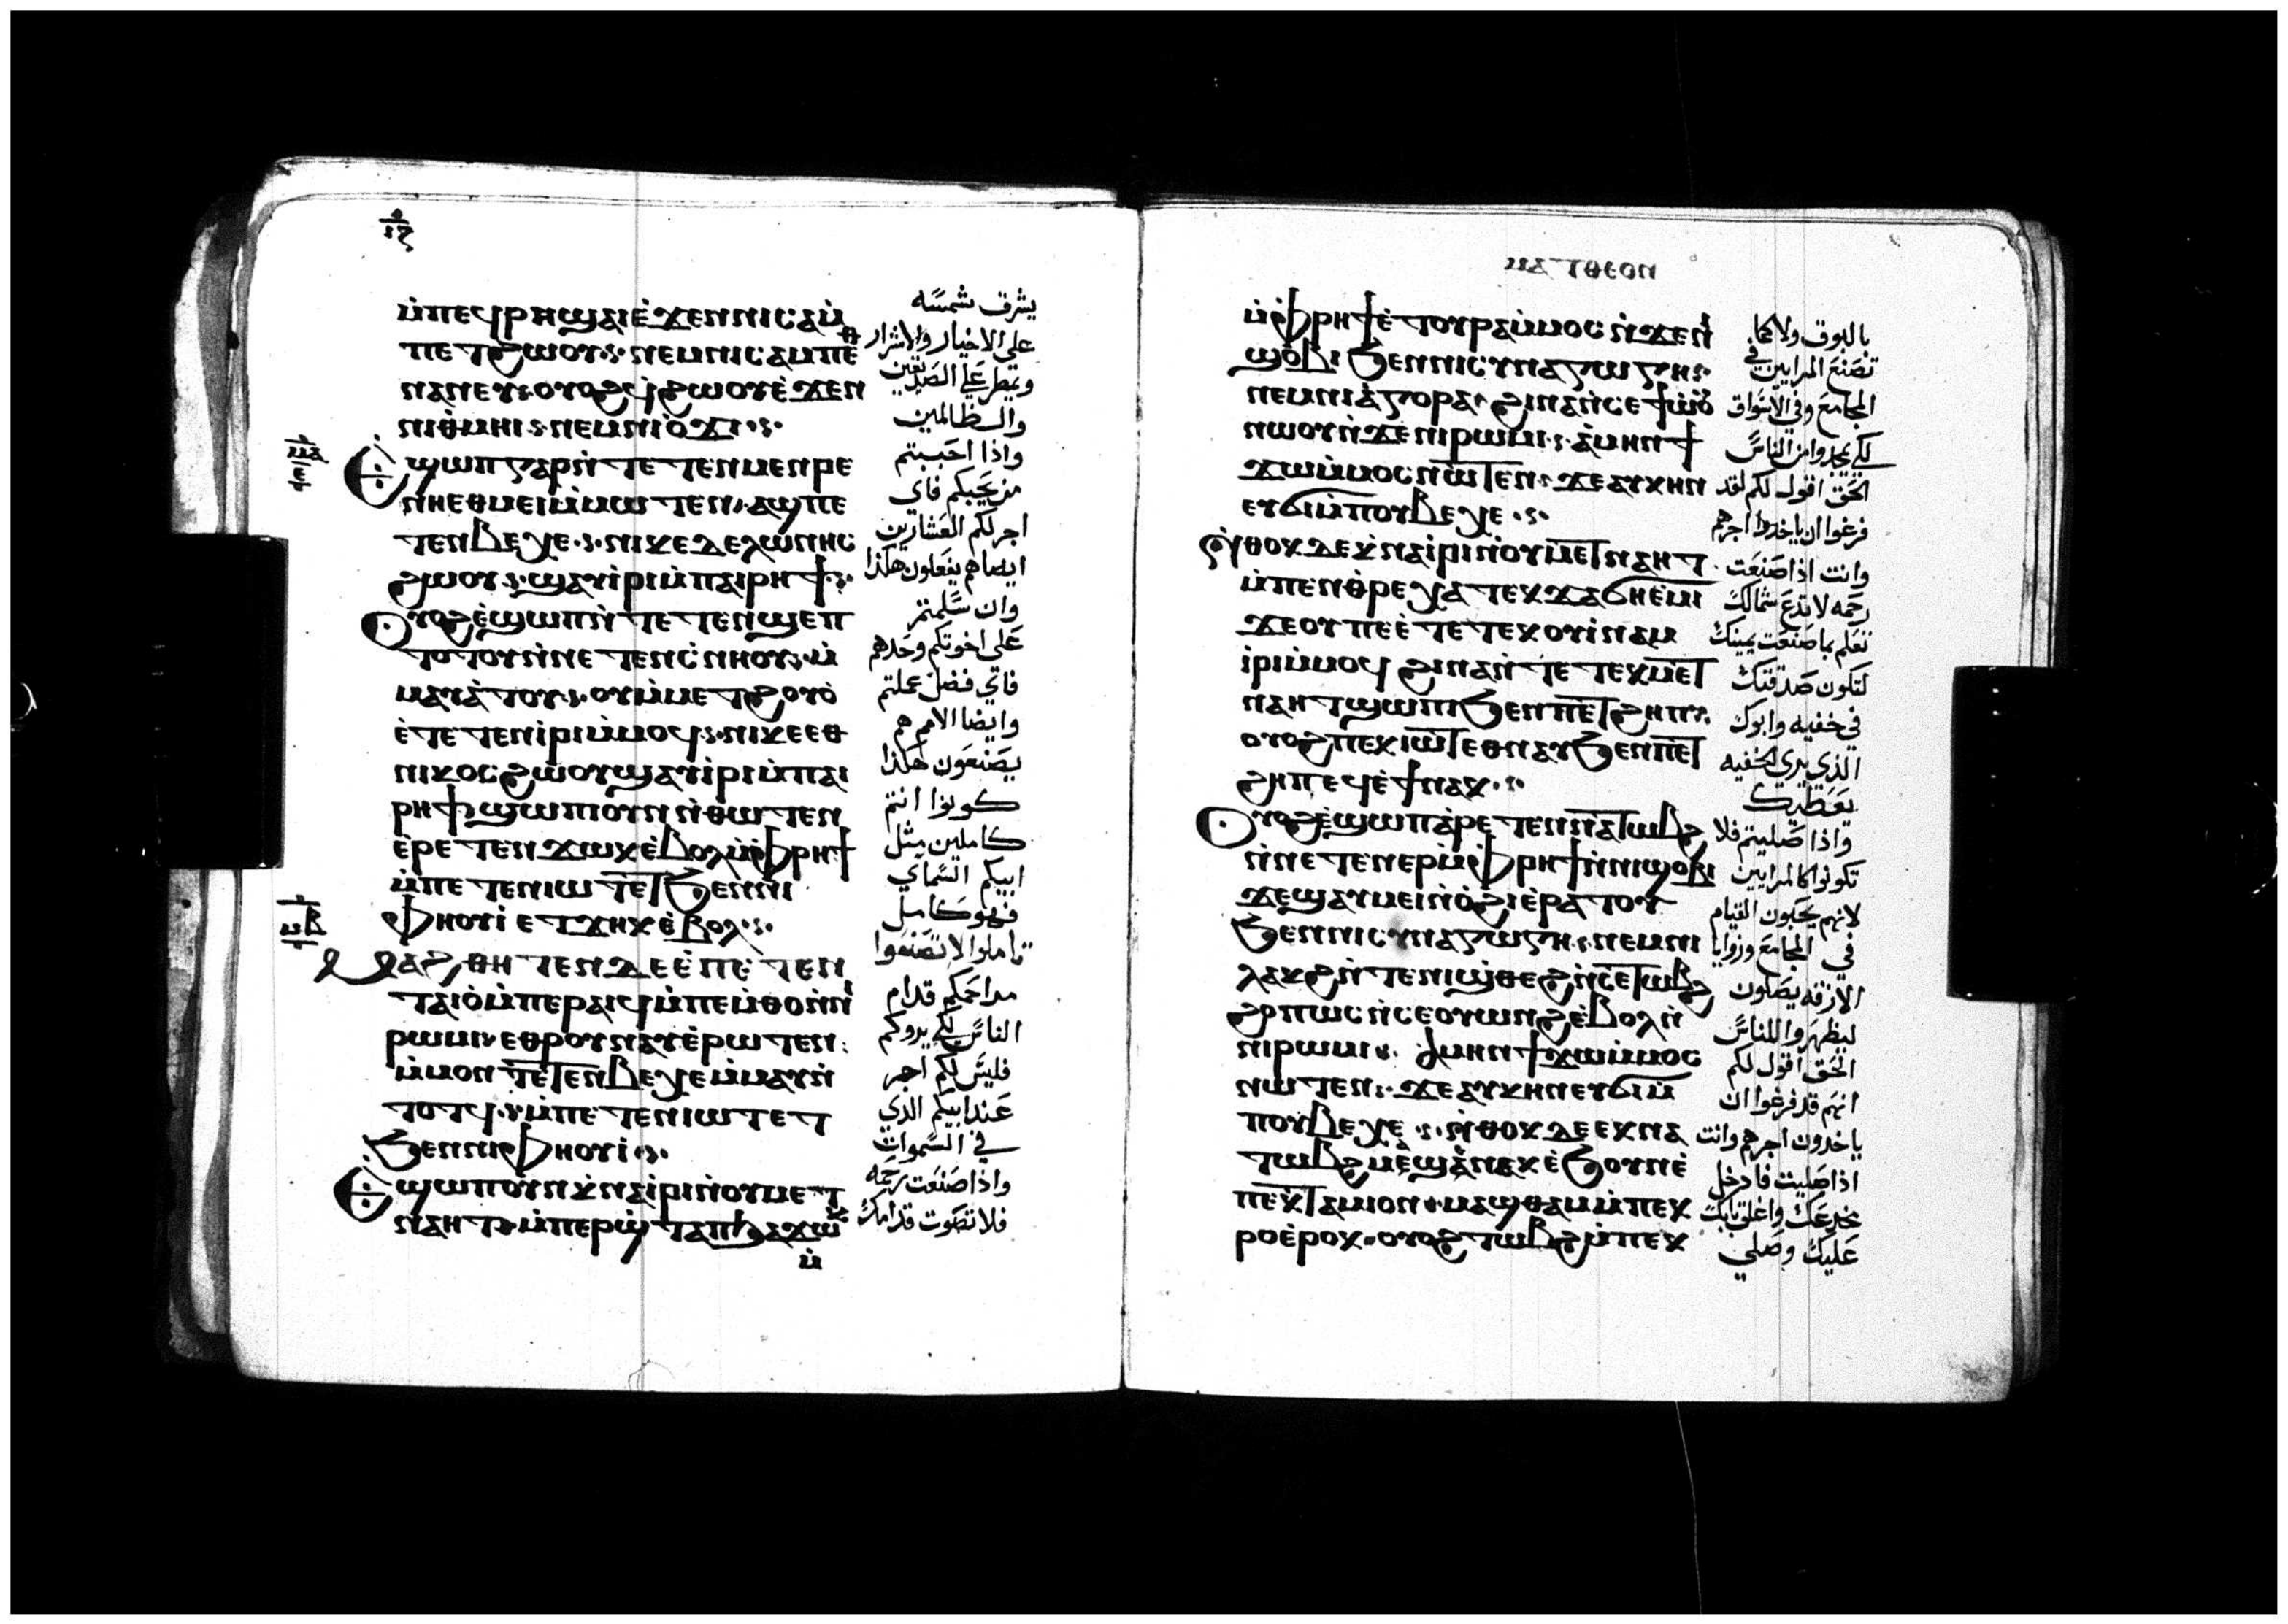 ⲙ̀ⲡⲉϥⲣⲏϣⲁⲓⲉ̀ϫⲉⲛⲛⲓⲥⲁⲙ̀
ⲡⲉⲧϩⲱⲟⲩ ⲛⲉⲙⲛⲓⲥⲁⲙⲡⲉⲑ
ⲛⲁⲛⲉⲩ ⲟⲩⲟϩϥϩⲱⲟⲩⲉ̀ϫⲉⲛ
ⲛⲓⲑⲙⲏⲓ ⲛⲉⲙⲛⲓⲟ̀ϫⲓ
ⲉ̀ϣⲱⲡⲅⲁⲣⲛ̀ⲧⲉⲧⲉⲛⲙⲉⲛⲣⲉ
ⲛⲏⲉⲑⲙⲉⲓⲙ̀ⲙⲱⲧⲉⲛ ⲁϣⲡⲉ
ⲧⲉⲛⲃⲉⲭⲉ ⲛⲓⲕⲉⲧⲉⲗⲱⲛⲏⲥ
ϩⲱⲟⲩ ϣⲁⲩⲓ̀ⲣⲓⲙ̀ⲡⲁⲓⲣⲏϯ
ⲟⲩⲟϩⲉ̀ϣⲱⲡⲛ̀ⲧⲉⲧⲉⲛϣⲉⲡ
ⲧⲟⲧⲟⲩⲛ̀ⲛⲉⲧⲉⲛⲥ̀ⲛⲏⲟⲩ ⲙ̀
ⲙⲁⲩⲁ̀ⲧⲟⲩ ⲟⲩⲙ̀ⲙⲉⲧϩⲟⲩⲟ̀
ⲉ̀ⲧⲉⲧⲉⲛⲓ̀ⲣⲓⲙ̀ⲙⲟϥ ⲛⲓⲕⲉⲉⲑ
ⲛⲓⲕⲟⲥϩⲱⲟⲩϣⲁⲩⲓ̀ⲣⲓⲙ̀ⲡⲁⲓ
ⲣⲏϯϣⲱⲡⲓⲟⲩⲛⲛ̀ⲑⲱⲧⲉⲛ
ⲉ̀ⲣⲉⲧⲉⲛϫⲱⲕⲉ̀ⲃⲟⲗⲙ̀ⲫⲣⲏϯ
ⲙ̀ⲡⲉⲧⲉⲛⲓⲱⲧⲉⲧϧⲉⲛⲛⲓ
ⲫⲏⲟⲩⲓ̀ ⲉⲧϫⲏⲕⲉ̀ⲃⲟⲗ
ⲙⲁϩⲑⲏⲧⲉⲛⲇⲉⲉ̀ⲡⲉⲧⲉⲛ
ⲧⲁⲓⲟ̀ⲙ̀ⲡⲉⲣⲁⲓϥⲙ̀ⲡⲉⲙ̀ⲑⲟⲛ̀ⲛⲓ
ⲣⲱⲙⲓ ⲉⲑⲣⲟⲩⲛⲁⲩⲉ̀ⲣⲱⲧⲉⲛ
ⲙ̀ⲙⲟⲛⲧⲉⲧⲉⲛⲃⲉⲭⲉⲙ̀ⲙⲁⲩⲛ̀
ⲧⲟⲧϥ ⲙ̀ⲡⲉⲧⲉⲛⲓⲱⲧⲉⲧ
ϧⲉⲛⲛⲓⲫⲏⲟⲩⲓ̀
ⲉ̀ϣⲱⲡⲟⲩⲛⲭ̀ⲛⲁⲓ̀ⲣⲓⲛ̀ⲟⲩⲙⲉⲧ
ⲛⲁⲏⲧ ⲙ̀ⲡⲉⲣⲱϣⲧⲁⲡϧⲁϫⲱⲕ
ⲙ̀
يشرق شمسه
على الاخيار والاشرار
ويمطر على الصديقين
والظالمين
واذا احببتم
من يحبكم فاي
اجر لكم العشارين
ايضا هم يفعلون هكذا
وان سلمتم
على اخوتكم وحدهم
فاي فضل عملتم
وايضا الامم هم
يصنعون هكذا
كونوا انتم
كاملين مثل
ابيكم السماي
فهو كامل
تاملوا لا تصنعوا
مراحمكم قدام
الناس لكي يروكم
فليس لكم اجر
عند ابيكم الذي
في السموات
واذا صنعت رحمه
فلا تصوت قدامك
ⲙⲁⲧⲑⲉⲟⲛ
ⲙ̀ⲫⲣⲏϯⲉ̀ⲧⲟⲩⲣⲁⲙ̀ⲙⲟⲥⲛ̀ϫⲉⲛⲓ
ϣⲟⲃⲓ ϧⲉⲛⲛⲓⲥⲩⲛⲁⲅⲱⲅⲏ
ⲛⲉⲙⲛⲓⲁ̀ⲅⲟⲣⲁ ϩⲓⲛⲁⲛ̀ⲥⲉϯⲱ̀ⲟⲩ
ⲛⲱⲟⲩⲛ̀ϫⲉⲛⲓⲣⲱⲙⲓ ⲁ̀ⲙⲏⲛϯ
ϫⲱⲙ̀ⲙⲟⲥⲛⲱⲧⲉⲛ ϫⲉⲁⲩⲕⲏⲛ
ⲉⲩϭⲓⲙ̀ⲡⲟⲩⲃⲉⲭⲉ
ⲛ̀ⲑⲟⲕⲇⲉⲭ̀ⲛⲁⲓ̀ⲣⲓⲛ̀ⲟⲩⲙⲉⲧⲛⲁⲏⲧ
ⲙ̀ⲡⲉⲛⲑⲣⲉⲭⲁⲧⲉⲕϫⲁϭⲏⲉ̀ⲙⲓ
ϫⲉⲟⲩⲡⲉⲉ̀ⲧⲉⲧⲉⲕⲟⲩⲓ̀ⲛⲁⲙ
ⲓ̀ⲣⲓⲙ̀ⲙⲟϥ ϩⲓⲛⲁⲛ̀ⲧⲉⲧⲉⲕⲙⲉⲧ
ⲛⲁⲏⲧϣⲱⲡⲓϧⲉⲛⲡⲉⲧϩⲏⲡ
ⲟⲩⲟϩⲡⲉⲕⲓⲱⲧⲉⲑⲛⲁⲩϧⲉⲛⲡⲉⲧ
ϩⲏⲡⲉϥⲉ̀ϯⲛⲁⲕ
ⲟⲩⲟϩⲉ̀ϣⲱⲡⲁ̀ⲣⲉⲧⲉⲛⲛⲁⲧⲱⲃϩ
ⲛ̀ⲛⲉⲧⲉⲛⲉⲣⲙ̀ⲫⲣⲏϯⲛ̀ⲛⲓϣⲟⲃⲓ
ϫⲉϣⲁⲩⲙⲉⲓⲛ̀ⲟ̀ϩⲓⲉ̀ⲣⲁⲧⲟⲩ
ϧⲉⲛⲛⲓⲥⲩⲛⲁⲅⲱⲅⲏ ⲛⲉⲙⲛⲓ
ⲗⲁⲕϩⲛ̀ⲧⲉⲛⲓϣⲑⲉϩⲛ̀ⲥⲉⲧⲱⲃϩ
ϩⲟⲡⲱⲥⲛ̀ⲥⲉⲟⲩⲱⲛϩⲉ̀ⲃⲟⲗⲛ̀
ⲛⲓⲣⲱⲙⲓ ⲁⲙⲏⲛϯϫⲱⲙ̀ⲙⲟⲥ
ⲛⲱⲧⲉⲛ ϫⲉⲁⲩⲕⲏⲛⲉⲩϭⲓⲙ̀
ⲡⲟⲩⲃⲉⲭⲉ ⲛ̀ⲑⲟⲕⲇⲉⲉⲕⲛⲁ
ⲧⲱⲃϩ ⲙⲉϣⲉⲛⲁⲕⲉ̀ϧⲟⲩⲛⲉ̀
ⲡⲉⲕⲧⲁⲙⲓⲟⲛ ⲙⲁϣⲑⲁⲙⲙ̀ⲡⲉⲕ
ⲣⲟⲉ̀ⲣⲟⲕ ⲟⲩⲟϩⲧⲱⲃϩⲙ̀ⲡⲉⲕ
بالبوق ولا كما
تصنع المرايين في
المجامع وفي الاسواق
لكي يمجدوا من الناس
الحق اقول لكم لقد
فرغوا ان ياخدوا اجرهم
وانت اذا صنعت
رحمه لا تدع شمالك
تعلم بما صنعت يمينك
لتكون صدقتك
في خفيه وابوك
الذي يرى الخفيه
يعطيك
واذا صليتم فلا
تكونوا كالمرايين
لانهم يحبون القيام
في المجامع وزوايا
الازقه يصلون
ليظهروا للناس
الحق اقول لكم
انهم قد فرغوا ان
ياخدون اجرهم وانت
اذا صليت فادخل
مخدعك واغلق بابك
عليك وصلي